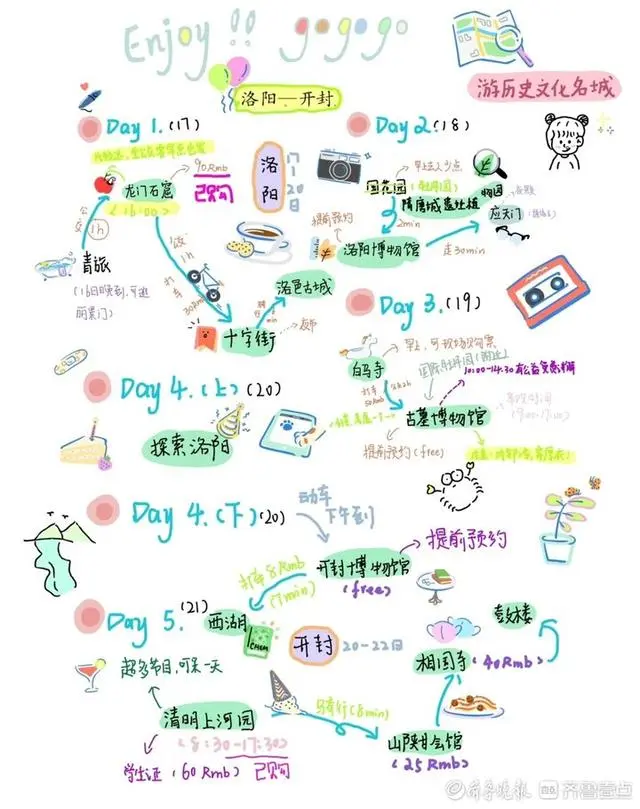 Enjoy!! gogogo
洛阳—开封
游历史文化名城
Day 1.(17)
90Rmb
龙门石窟
已购
(16:00)
公交1h
青旅
洛阳
17
20日
1h
打车
30Rmb
洛邑古城
十字街
Day 2.(18)
国花园
隋唐城遗址植物园
提前预约
2min
应天门
洛阳博物馆
走30min
Day 3.(19)
早上,可现场购票
白马寺
国际牡丹园(附近)
10:00-14:30有公益免费讲解
打车
50Rmb
古墓博物馆
提前预约(free)
Day 4.(上)(20)
探索洛阳
Day 4.(下)(20)
动车
下午到
提前预约
打车8Rmb
(7min)
开封博物馆
(free)
Day 5.(21)
西湖
开封
20-22日
超多节目,可呆一天
相国寺(40Rmb)
清明上河园
骑行(8min)
(8:30-17:30)
山陕甘会馆
(25Rmb)
学生证(60Rmb)已购
齐鲁晚报·齐鲁壹点